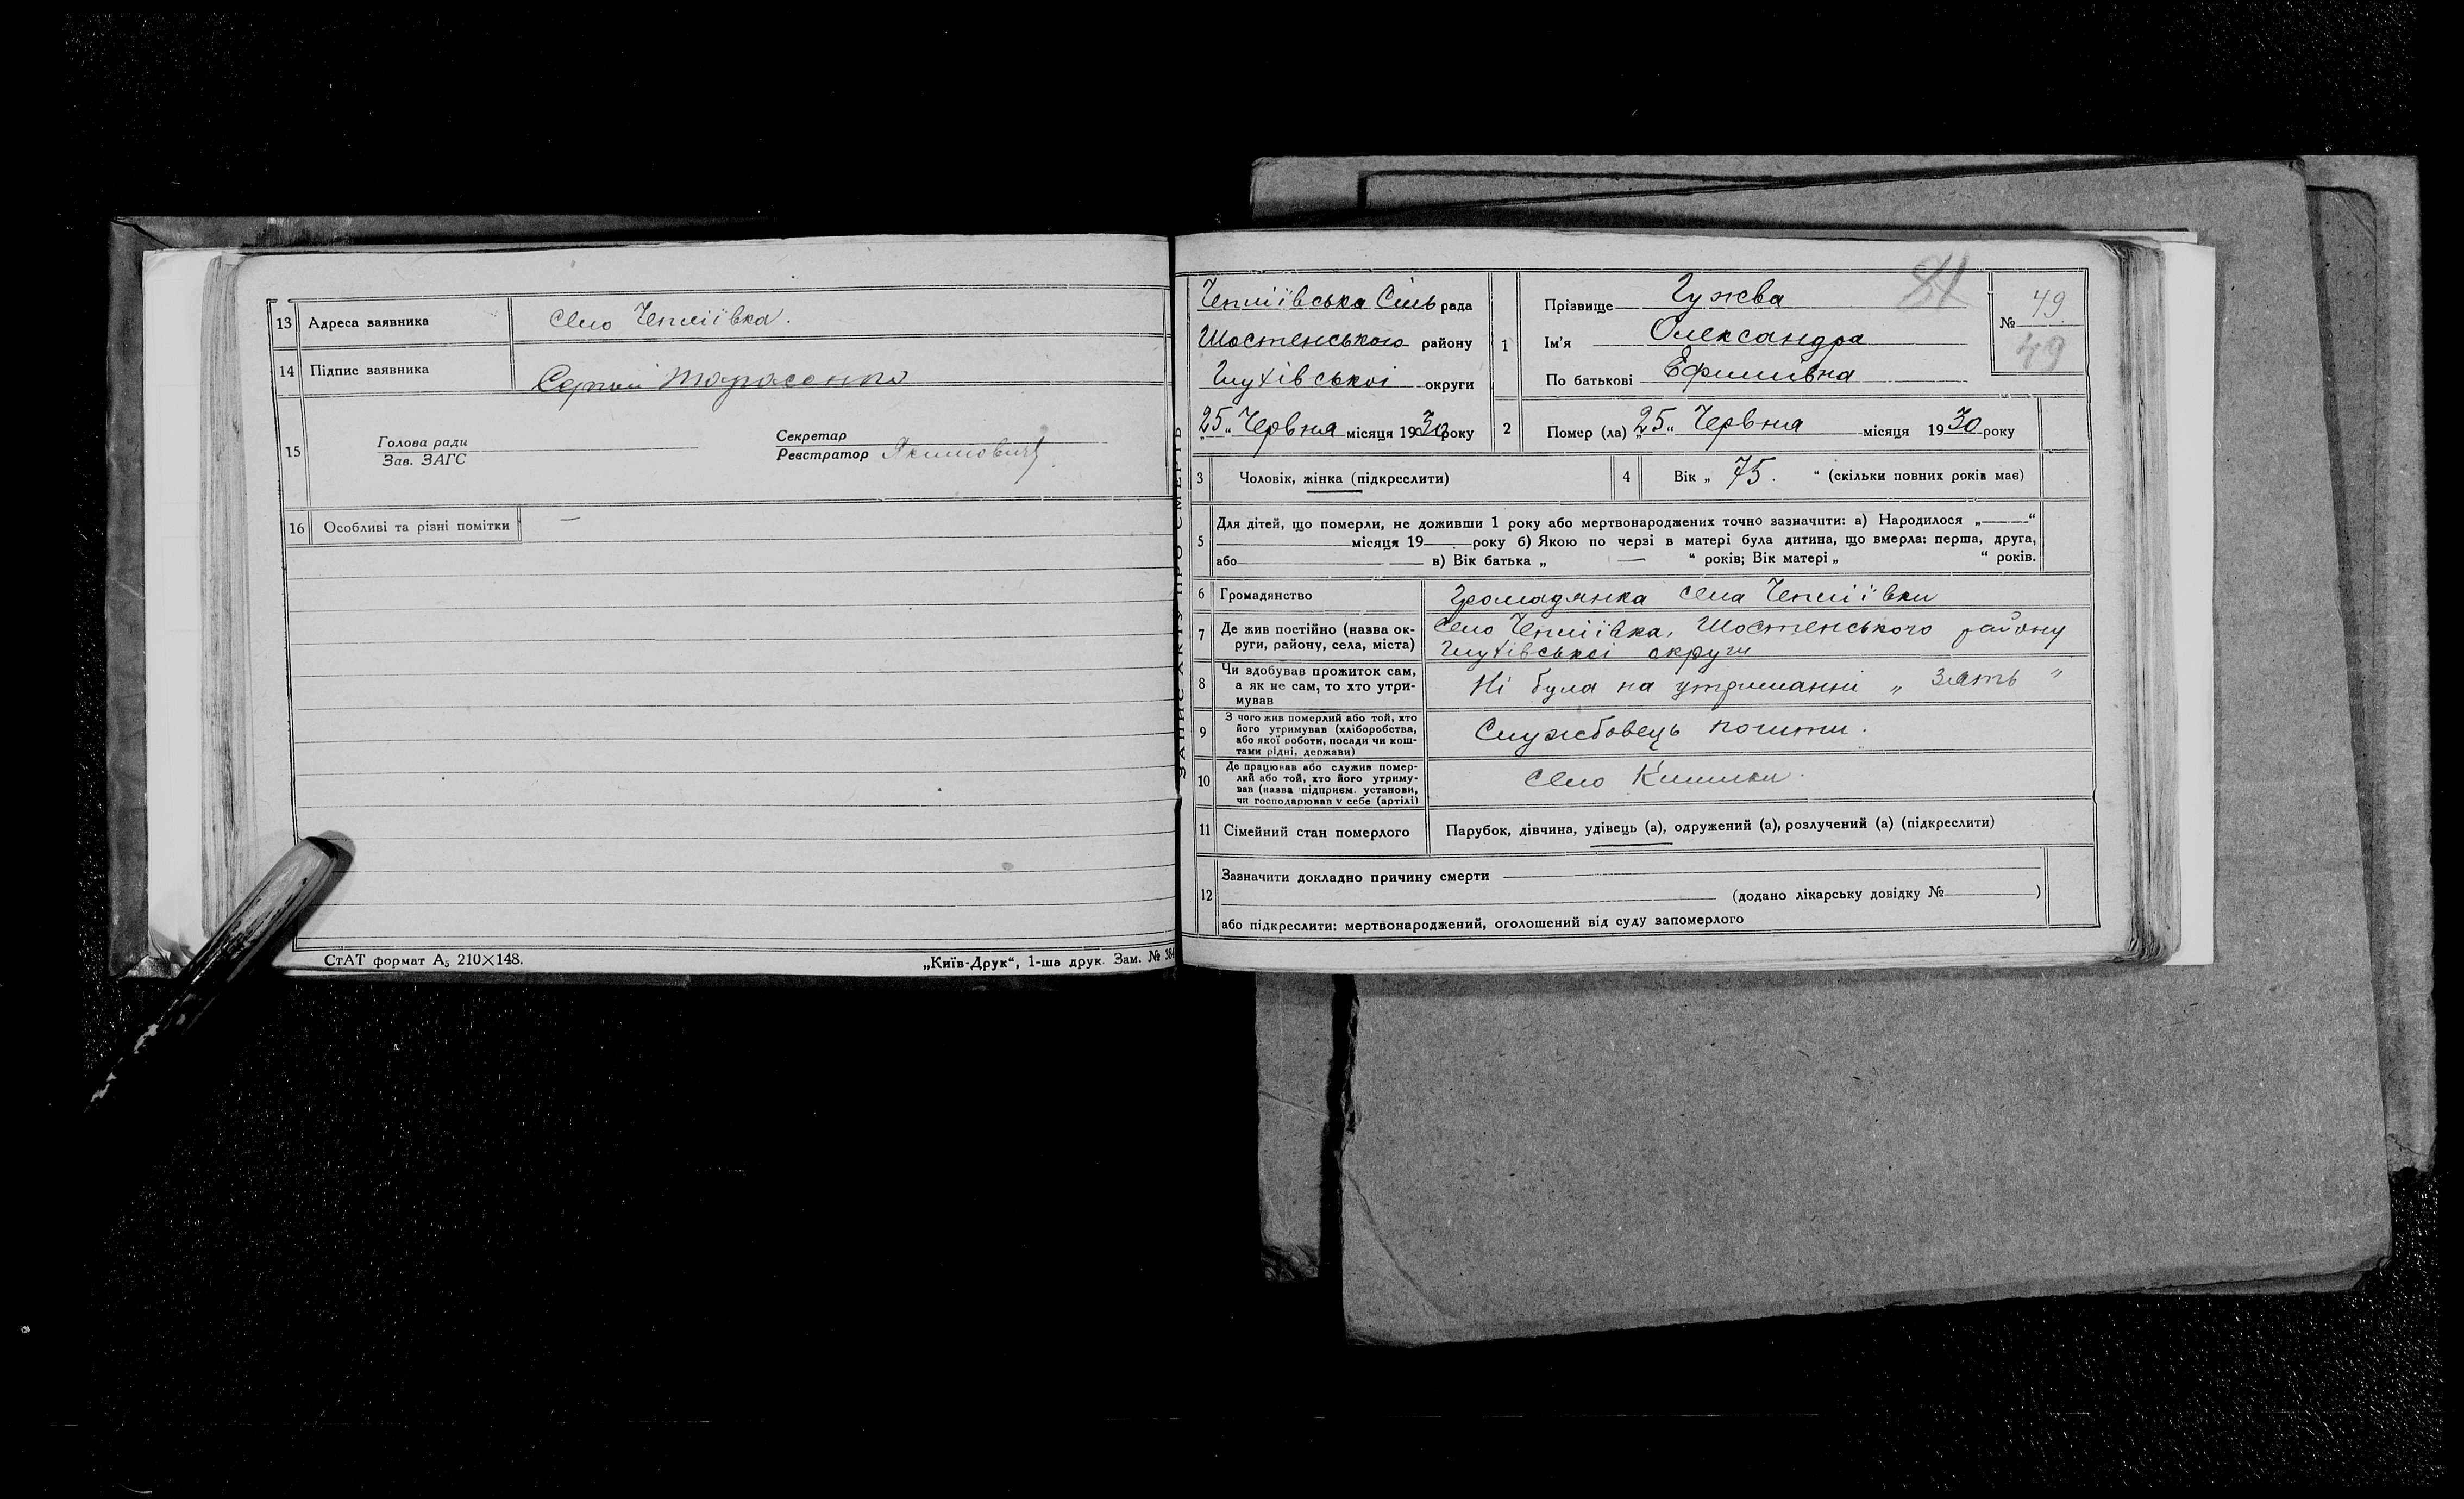 13 Адреса заявника село Чепліївка.
14 Підпис заявника Сергій Тарасенко
15 Голова ради
Зав. ЗАГС
Секретар
Реєстратор Якимович
16 Особливі та різні помітки —
СтАТ формат А₅ 210×148.
„Київ-Друк“, 1-ша друк. Зам. № 384
ЗАПИС АКТУ ПРО СМЕРТЬ
Чепліївська Сіль рада
Шостенського району
Глухівської округи
„25„ Червня місяця 1930 року
1 Прізвище Гужва
Ім'я Олександра
По батькові Ефимівна
81
№ 49
49
2 Помер (ла) „25„ Червня місяця 1930 року
3 Чоловік, жінка (підкреслити)
4 Вік „ 75. “ (скільки повних років має)
5 Для дітей, що померли, не доживши 1 року або мертвонароджених точно зазначити: а) Народилося „——“
місяця 19 року б) Якою по черзі в матері була дитина, що вмерла: перша, друга,
або в) Вік батька „ — “ років; Вік матері „ “ років.
6 Громадянство Громадянка села Чепліївки
7 Де жив постійно (назва округи, району, села, міста) Село Чепліївка, Шостенського району
Глухівської округи
8 Чи здобував прожиток сам,
а як не сам, то хто утри-
мував Ні була на утриманні „ Зять “
9 З чого жив померлий або той, хто
його утримував (хліборобства,
або якої роботи, посади чи кош-
тами рідні, держави) Службовець пошти.
10 Де працював або служив помер-
лий або той, хто його утриму-
вав (назва підприєм. установи,
чи господарював у себе (артілі) село
11 Сімейний стан померлого Парубок, дівчина, удівець (а), одружений (а), розлучений (а) (підкреслити)
12 Зазначити докладно причину смерти
(додано лікарську довідку № )
або підкреслити: мертвонароджений, оголошений від суду запомерлого